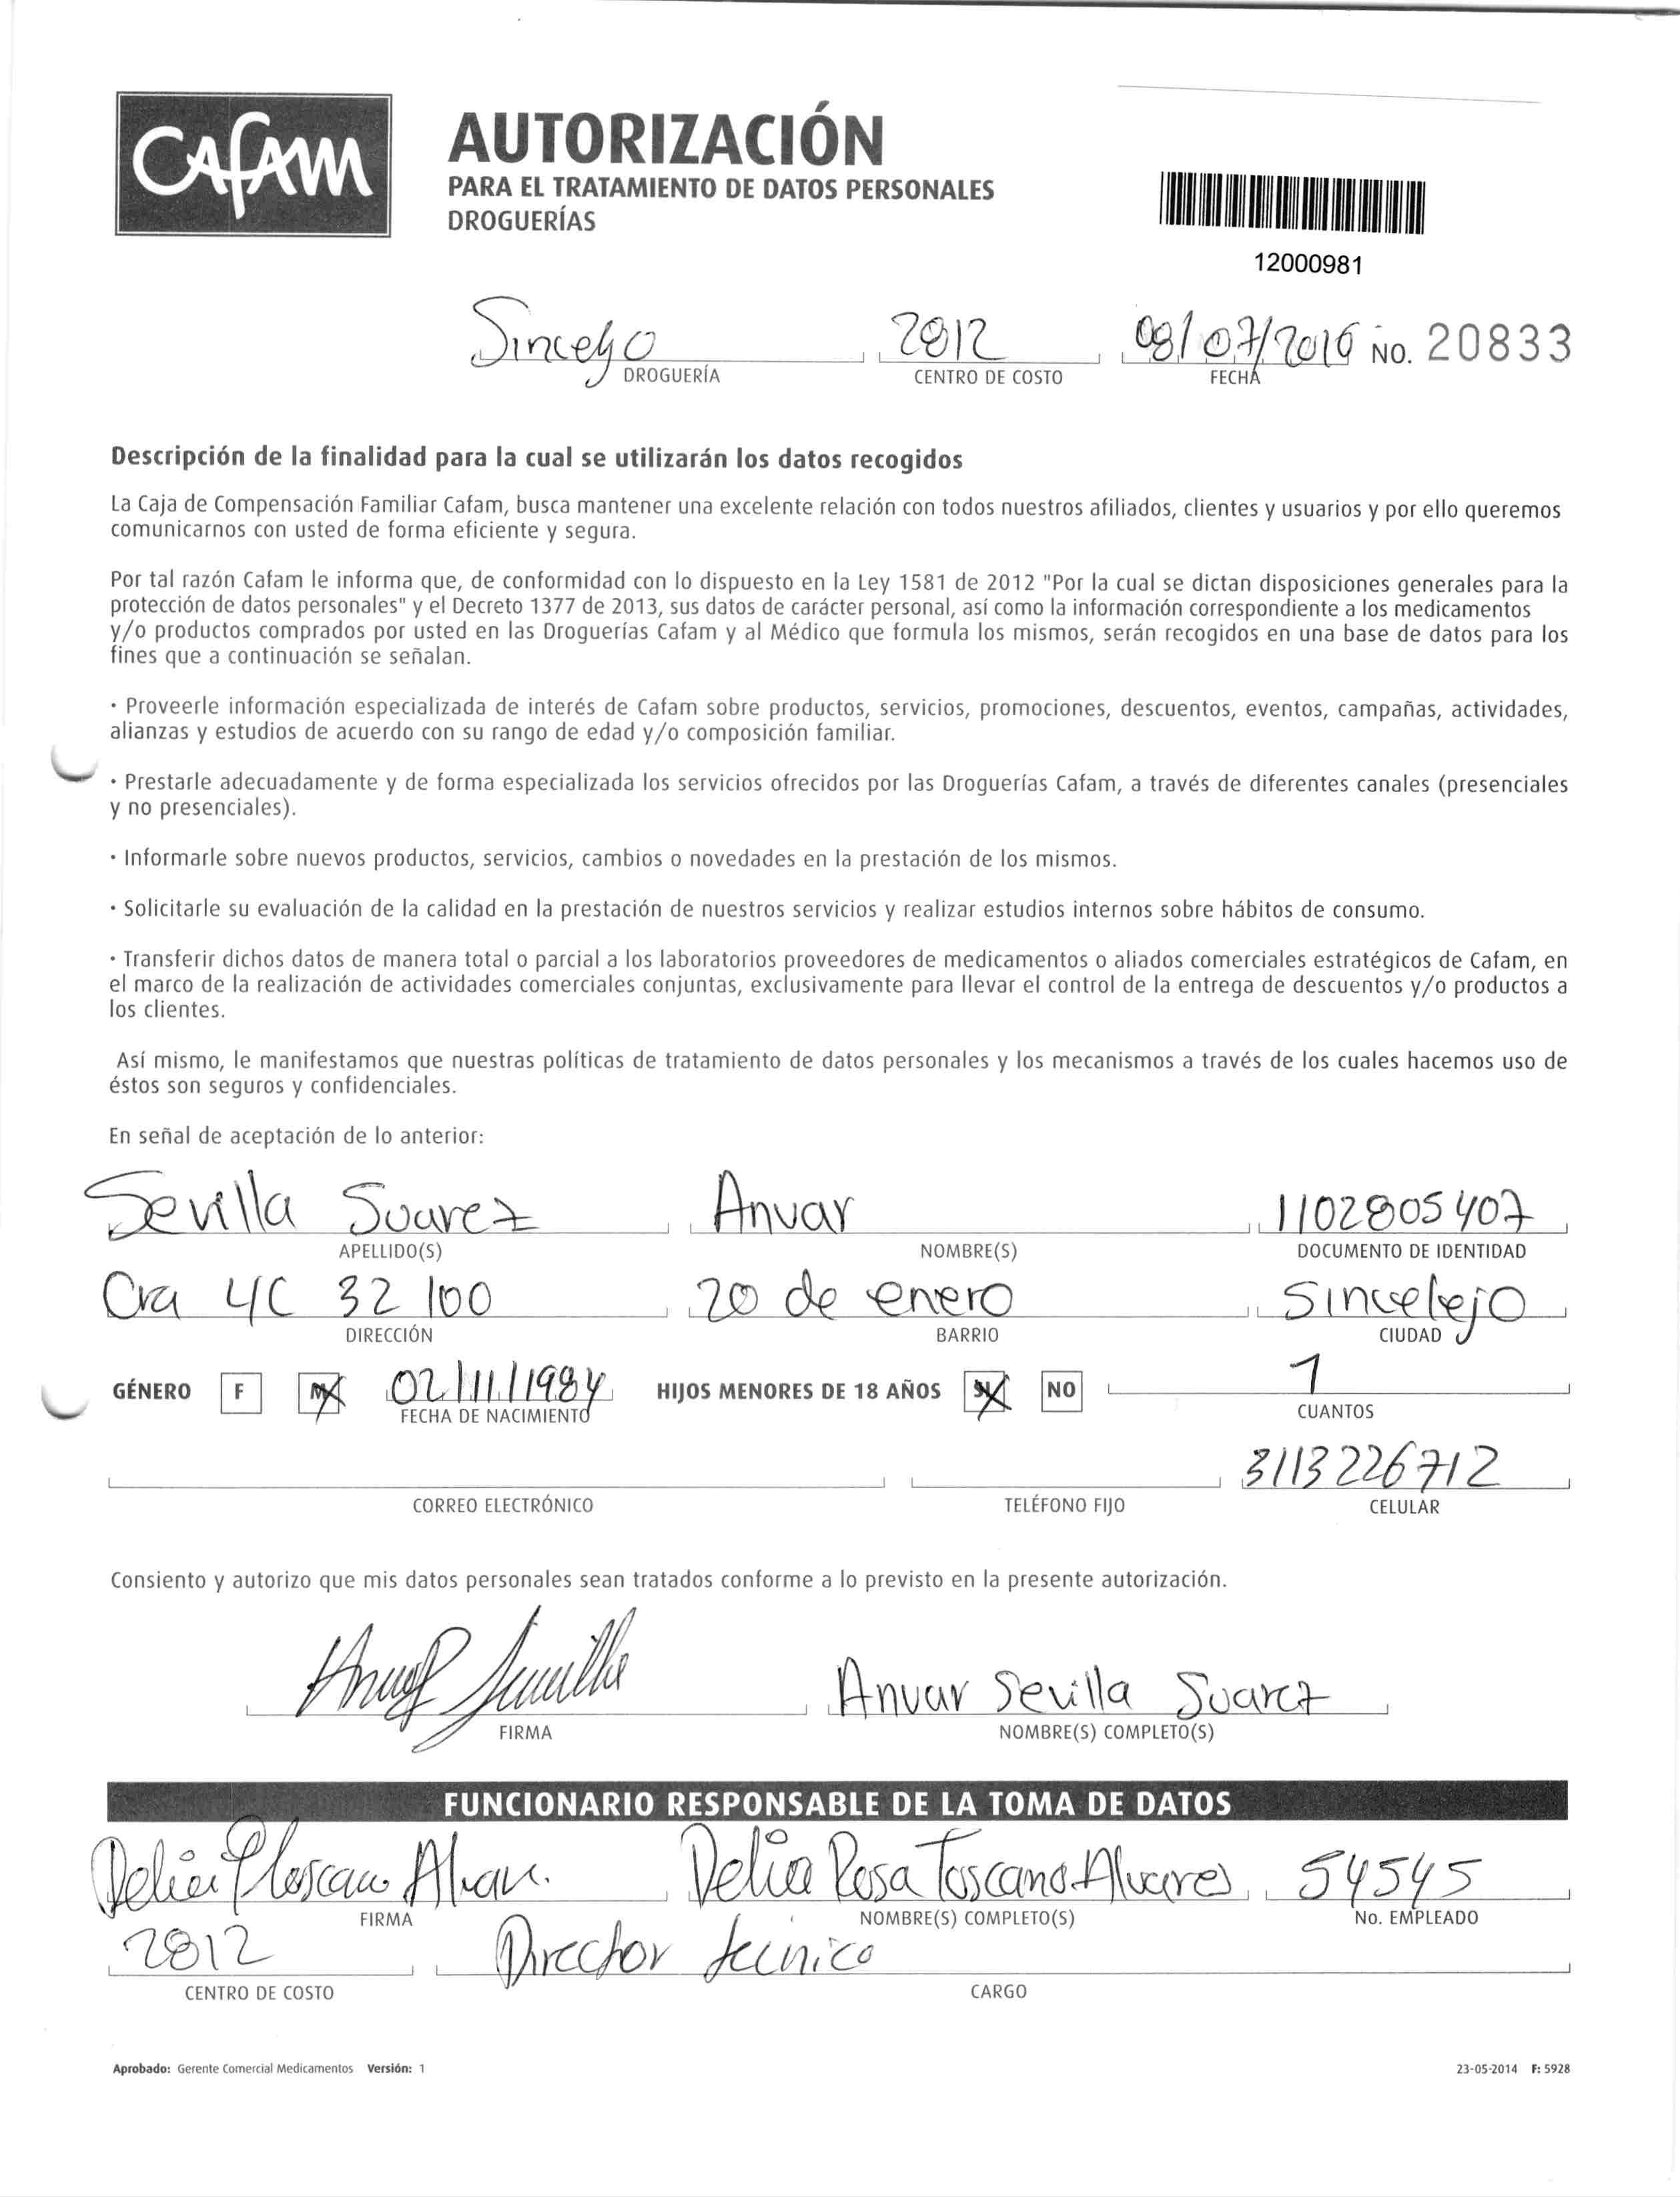 CAFAM
AUTORIZACIÓN
PARA EL TRATAMIENTO DE DATOS PERSONALES
DROGUERÍAS
12000981
Sincelejo 2812 08/07/2016 NO. 20833
DROGUERÍA CENTRO DE COSTO FECHA
Descripción de la finalidad para la cual se utilizarán los datos recogidos
La Caja de Compensación Familiar Cafam, busca mantener una excelente relación con todos nuestros afiliados, clientes y usuarios y por ello queremos
comunicarnos con usted de forma eficiente y segura.
Por tal razón Cafam le informa que, de conformidad con lo dispuesto en la Ley 1581 de 2012 "Por la cual se dictan disposiciones generales para la
protección de datos personales" y el Decreto 1377 de 2013, sus datos de carácter personal, así como la información correspondiente a los medicamentos
y/o productos comprados por usted en las Droguerías Cafam y al Médico que formula los mismos, serán recogidos en una base de datos para los
fines que a continuación se señalan.
· Proveerle información especializada de interés de Cafam sobre productos, servicios, promociones, descuentos, eventos, campañas, actividades,
alianzas y estudios de acuerdo con su rango de edad y/o composición familiar.
· Prestarle adecuadamente y de forma especializada los servicios ofrecidos por las Droguerías Cafam, a través de diferentes canales (presenciales
y no presenciales).
· Informarle sobre nuevos productos, servicios, cambios o novedades en la prestación de los mismos.
· Solicitarle su evaluación de la calidad en la prestación de nuestros servicios y realizar estudios internos sobre hábitos de consumo.
· Transferir dichos datos de manera total o parcial a los laboratorios proveedores de medicamentos o aliados comerciales estratégicos de Cafam, en
el marco de la realización de actividades comerciales conjuntas, exclusivamente para llevar el control de la entrega de descuentos y/o productos a
los clientes.
Así mismo, le manifestamos que nuestras políticas de tratamiento de datos personales y los mecanismos a través de los cuales hacemos uso de
éstos son seguros y confidenciales.
En señal de aceptación de lo anterior:
Sevilla Suarez Anuar 1102805407
APELLIDO(S) NOMBRE(S) DOCUMENTO DE IDENTIDAD
Cra 4C 32 100 20 de enero Sincelejo
DIRECCIÓN BARRIO CIUDAD
GÉNERO F M 02/11/1984 HIJOS MENORES DE 18 AÑOS SI NO 1
FECHA DE NACIMIENTO CUANTOS
3113226712
CORREO ELECTRÓNICO TELÉFONO FIJO CELULAR
Consiento y autorizo que mis datos personales sean tratados conforme a lo previsto en la presente autorización.
Anuar Sevilla Suarez
FIRMA NOMBRE(S) COMPLETO(S)
FUNCIONARIO RESPONSABLE DE LA TOMA DE DATOS
Delia Rosa Toscano Alvares 54545
FIRMA NOMBRE(S) COMPLETO(S) No. EMPLEADO
2812 Director tecnico
CENTRO DE COSTO CARGO
Aprobado: Gerente Comercial Medicamentos Versión: 1 23-05-2014 F: 5928